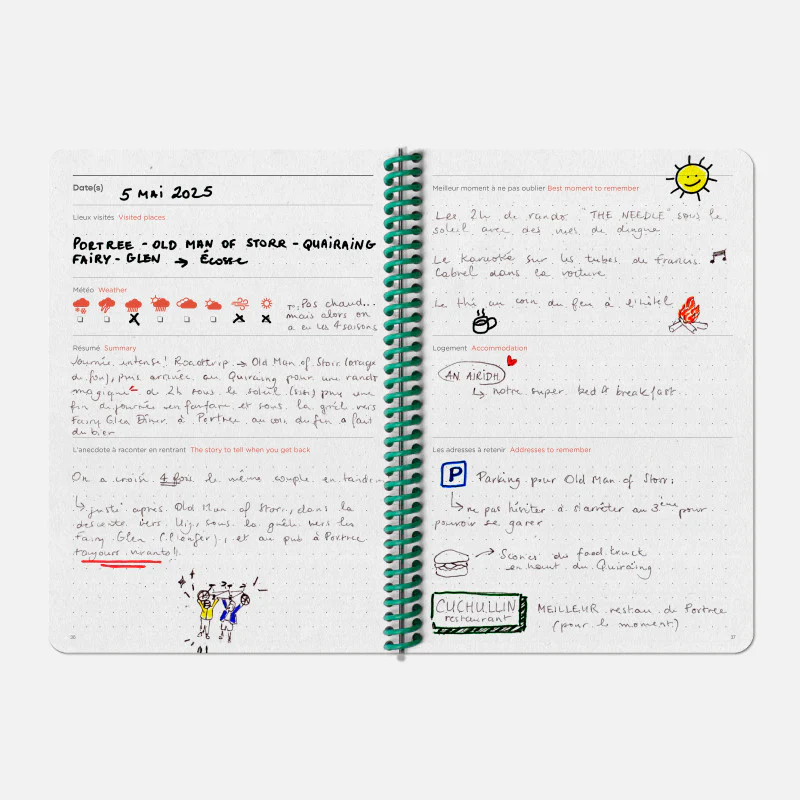 Date(s) 5 MAI 2025
Lieux visités Visited places
PORTREE - OLD MAN OF STORR - QUAIRAING
FAIRY - GLEN → Écosse
Météo Weather
Pas chaud...
mais alors on
a eu les 4 saisons
Résumé Summary
Journée intense! Roadtrip → Old Man of Storr (orage
du fun), puis arrivée au Quiraing pour une rando
magique de 2h sous le soleil puis une
fin de journée en fanfare et sous la grêle vers
Fairy Glen Dîner à Portree au coin du feu a fait
du bien
L'anecdote à raconter en rentrant The story to tell when you get back
On a croisé 4 fois le même couple en tandem
↳ juste après Old Man of Storr, dans la
descente vers Uig, sous la grêle vers les
Fairy Glen, et au pub à Portree
toujours vivants!!
36
Meilleur moment à ne pas oublier Best moment to remember
Les 2h de rando "THE NEEDLE" sous le
soleil avec des vues de dingue
Le karaoké sur les tubes de Francis
Cabrel dans la voiture
Le thé au coin du feu à l'hôtel
Logement Accommodation
AN AIRIDH
↳ notre super bed & breakfast
Les adresses à retenir Addresses to remember
P Parking pour Old Man of Storr:
↳ ne pas hésiter à s'arrêter au 3ème pour
pouvoir se garer
→ Scones du food truck
en haut du Quiraing
CUCHULLIN
restaurant
MEILLEUR restau de Portree
(pour le moment)
37